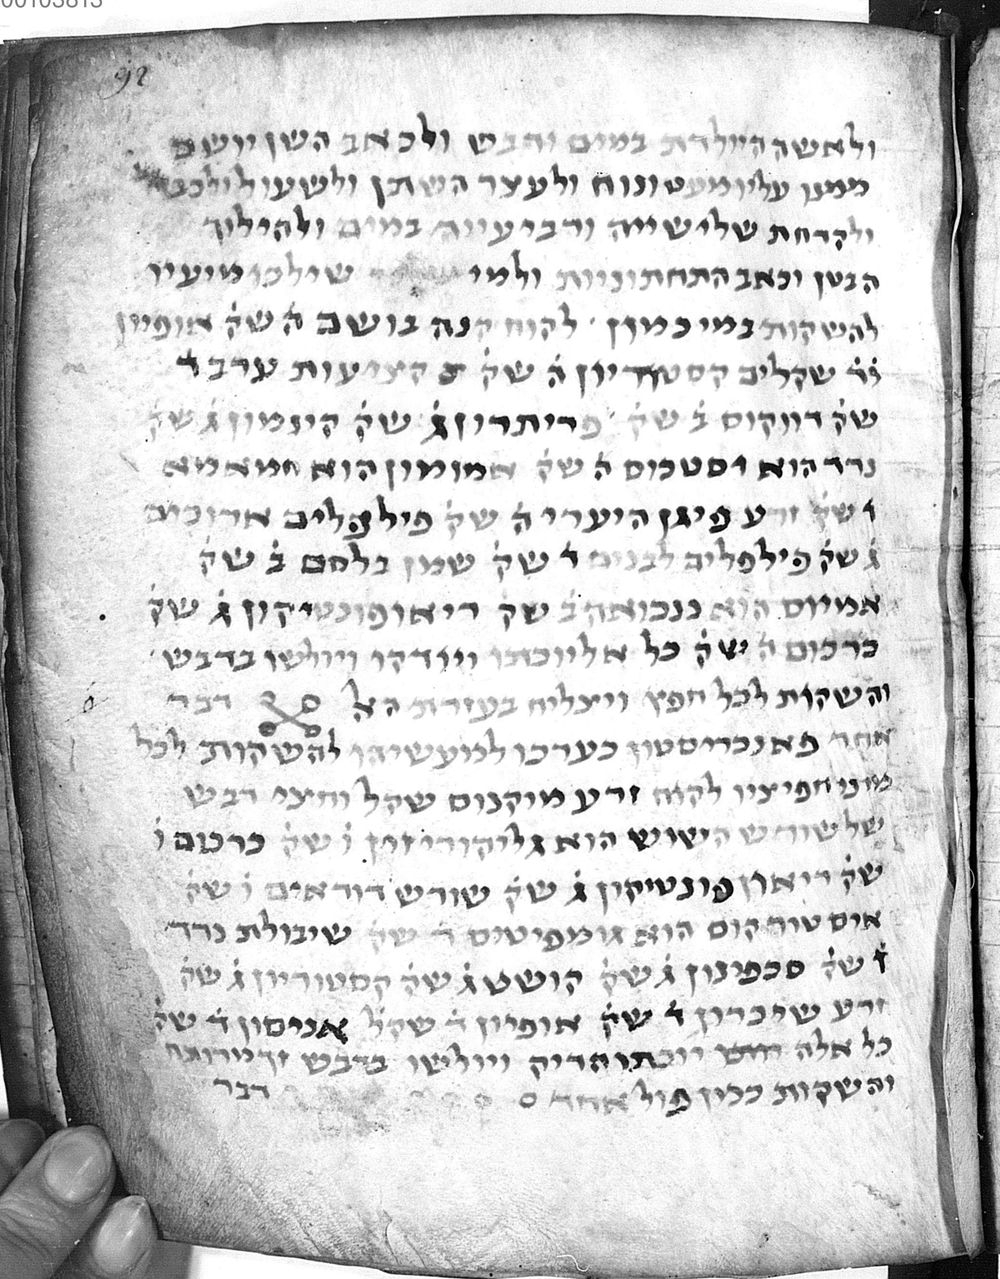 00103813
92
ולאשה היולדת במים ודבש ולכאב השן יושם
ממנו עליו מעט ונוח ולעצר השתן ולשעול ולכבד
ולקדחת שלישייה ורביעייה במים ולהוליך
הבטן וכאב התחתוניות ולמי שילכו מיעיו
להשקות במי כמון לקוח קנה בושם ה שק אופיון
שקלים קסטוריון ה שק קציעות ערב ד
שק דווקוס ב שק פריתרון ג שק קינמון ג שק
נרד הוא וסטכוס ה שק אמומון הוא חמאמא
ו שק זרע פיגן היערי ה שק פילפלים ארוכים
ג שק פילפלים לבנים ד שק שמן בלסם ב שק
אמיוס הוא ננכואה ב שק ריאופונטיקון ג שק
כרכום ה שק כל אלו יכתו ויודקו ויולשו בדבש
והשקות לכל חפץ ויצליח בעזרת האל דבר
אחר פאנכריסטון כערכו למעשיהו להשקות לכל
מונו חפיציו לקוח זרע מיקנוס שקל וחצי דבש
של שורש השוש הוא גליקוריזון ו שק כרכום ו
שק ריאון פונטיקון ג שק שורש דודאים ו שק
הוא ד שק שיבולת נרד
ו שק סכפינון ג שק קושט ג שק קסטוריון ג שק
זרע שיכרון ד שק אופיון ד שקל אניסון ד שק
כל אלה יוכתו הדיק ויולשו בדבש
והשקות כמין פול אחד דבר